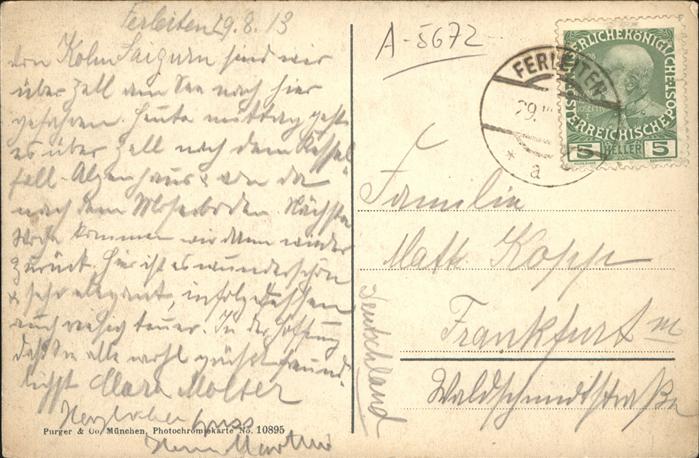 Ferleiten 29.8.13
Von Kolm Saigurn sind wir
über Zell am See nach hier
gefahren. Heute mittag geht
es über Zell nach dem Kessel-
fall-Alpenhaus & von da
nach dem Moserboden. Nächste
Woche kommen wir dann wieder
zurück. Hier ist es wunderschön
& sehr elegant, infolgedessen
auch riesig teuer. In der Hoffnung
daß Sie alle wohl grüßt freund-
lichst Clara Molter
Herzlichen Gruss
Martin
Purger & Co. München, Photochromiekarte No. 10895
A-5672
FERLEITEN
29.
* a
KAISERLICHE KÖNIGLICHE
ÖSTERREICHISCHE POST
5 HELLER 5
Familie
Math. Kopp
Frankfurt M
Waldschmidtstraße
Deutschland